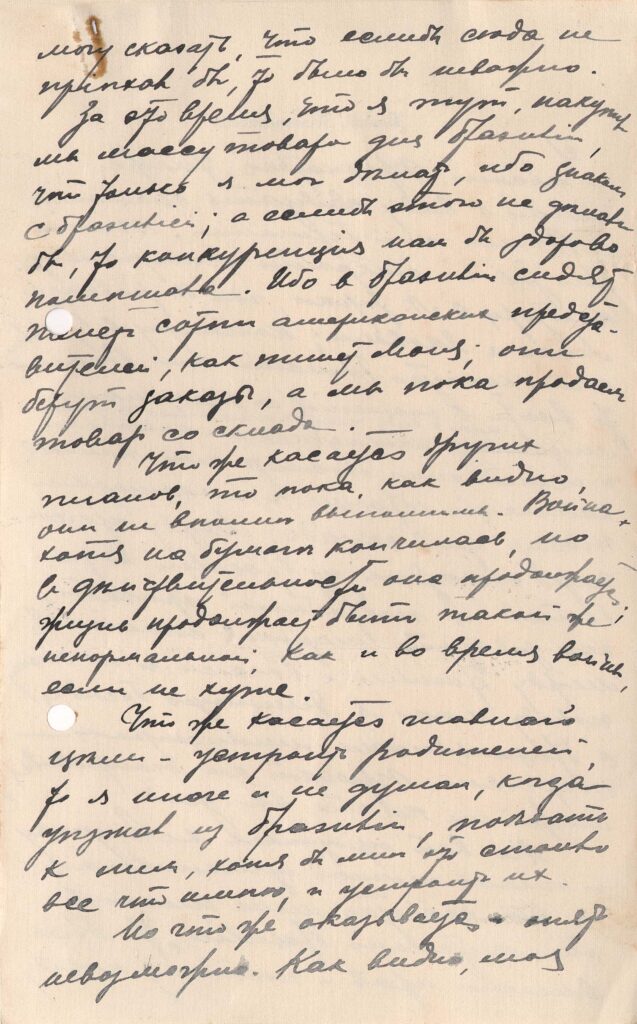 могу сказать, что еслибъ сюда не
пріѣхав бы, то было бы неважно.
За это время, что я тут, накупил
мы массу товара для Бразиліи,
что только я мог дѣлать, ибо знаком
с Бразиліей; а еслибъ этого не дѣлав
бы, то конкуренція нам бы здорово
помѣшала. Ибо в Бразиліи сидят
теперь сотни американских предста-
вителей, как пишет Моня; они
берут заказы, а мы пока продаем
товар со склада.
Что же касается других
планов, то пока, как видно,
они не вполнѣ выполнимы. Война,
хотя на бумагѣ кончилась, но
в дѣйствительности она продолжается;
жизнь продолжает быть такой же
ненормальной, как и во время войны,
если не хуже.
Что же касается главной
цѣли - устроить родителей,
то я иначе и не думал, когда
уѣзжав из Бразиліи, поѣхать
к ним, хотя бы мнѣ это стоило
все что имѣю, и устроить их.
Но что же оказывается - опять
невозможно. Как видно, моя